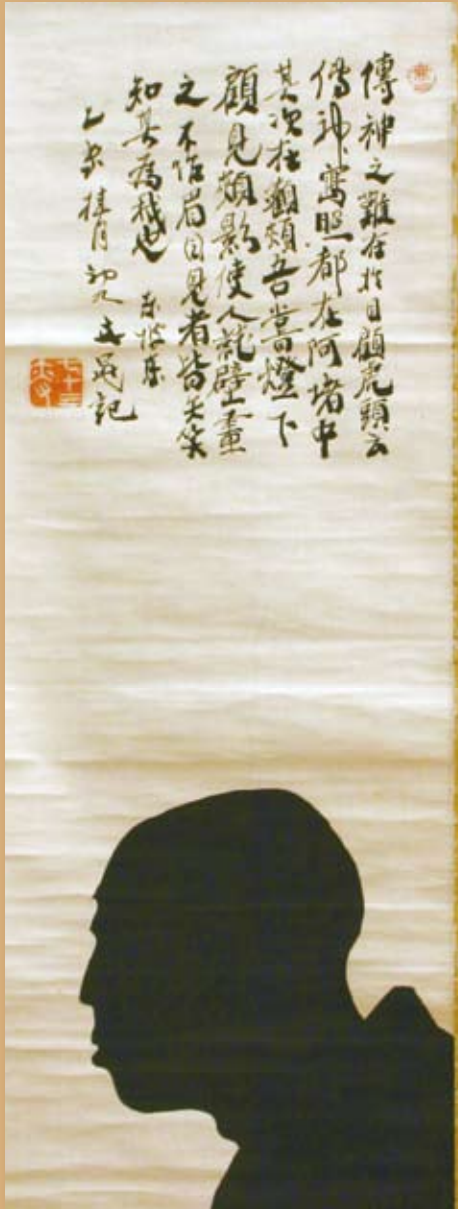 傳神之難在於目顧虎頭云
傳神寫照都在阿堵中
其次在顴頰吾嘗燈下
顧見頰影使人就壁畫
之不作眉目見者皆失笑
知其為我也 東坡
乙 桂月初九 記